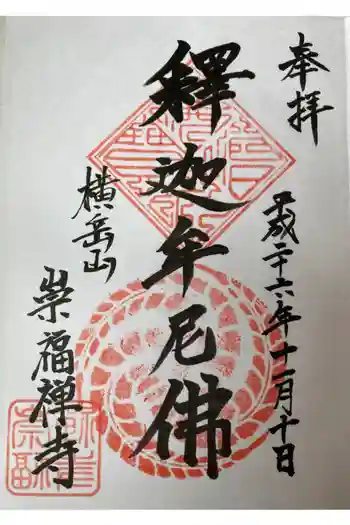 奉拝
平成二十六年十一月十日
釋迦牟尼佛
横岳山
崇福禅寺